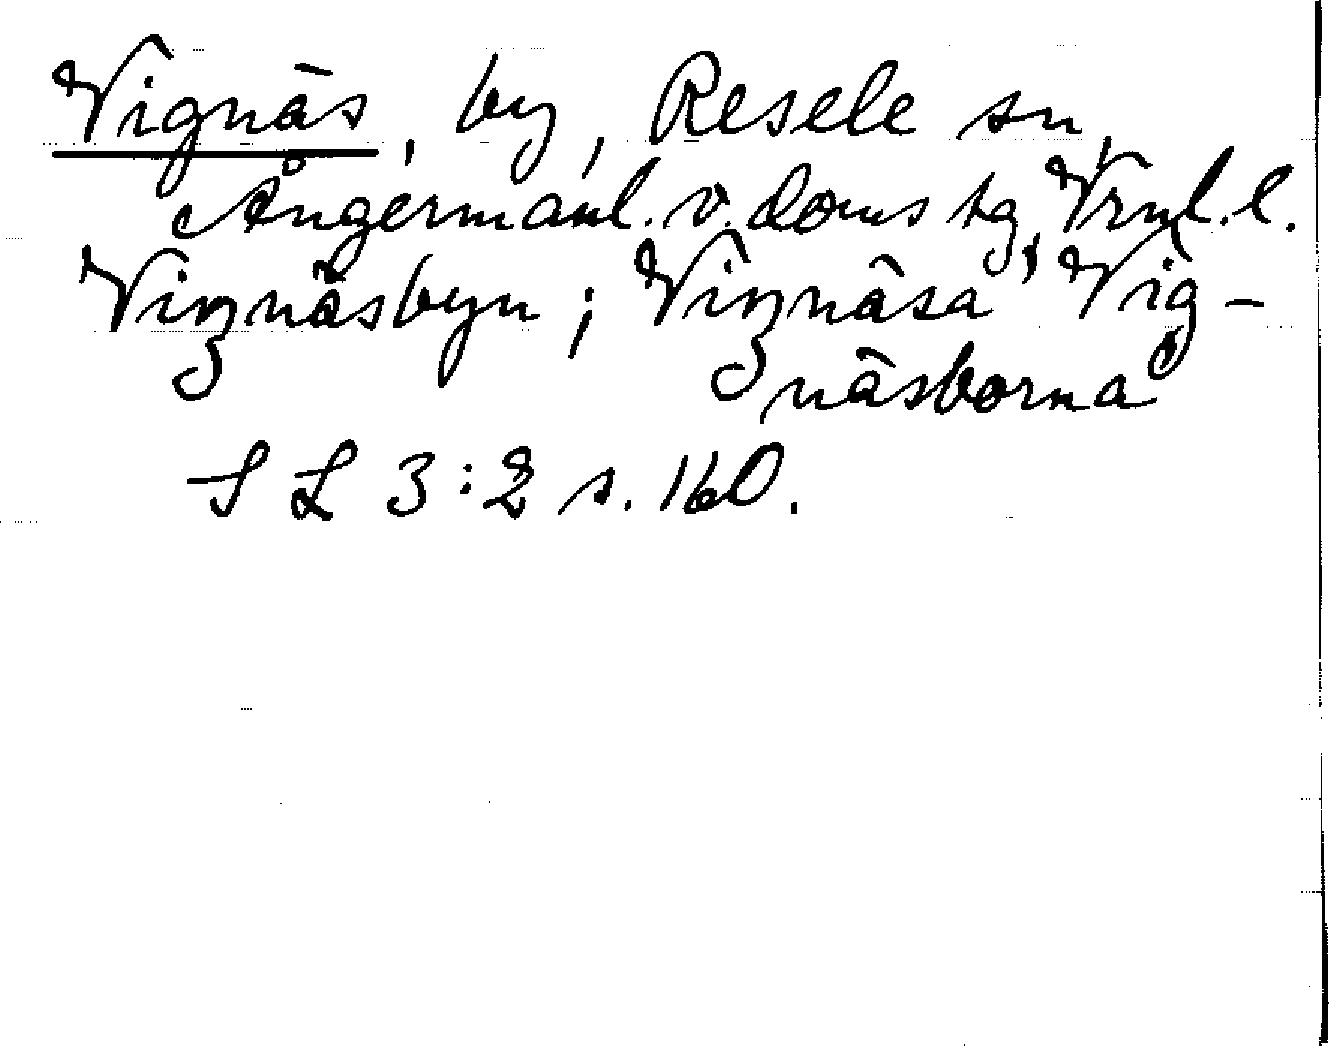 Vignäs, by, Resele sn,
Ångermanl. v. doms tg, Vrnl. l.
Viŋnäsbyn; Viŋnäsa 'Vig-
näsborna'
S L 3:2 s. 160.